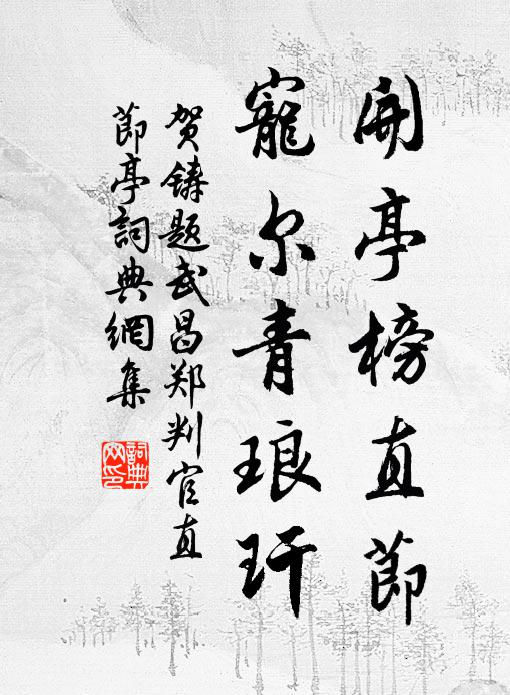 開亭榜直節
寵尔青琅玕
贺鑄题武昌郑判官直
節亭詞典網集
詞典网印